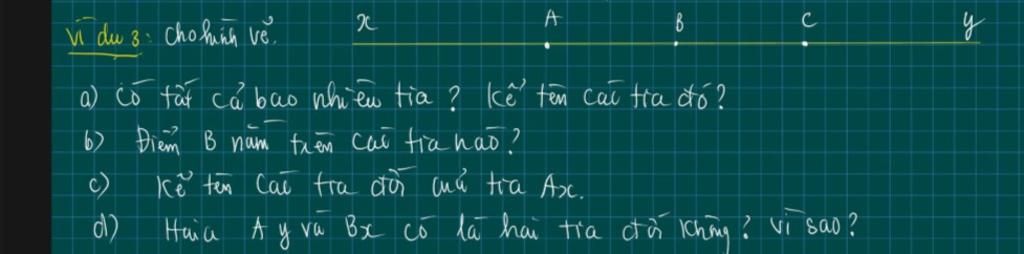 Ví dụ 3: Cho hình vẽ. x A B C y
a) Có tất cả bao nhiêu tia? Kể tên các tia đó?
b) Điểm B nằm trên các tia nào?
c) Kể tên các tia đối của tia Ax.
d) Hai tia Ay và Bx có là hai tia đối không? Vì sao?